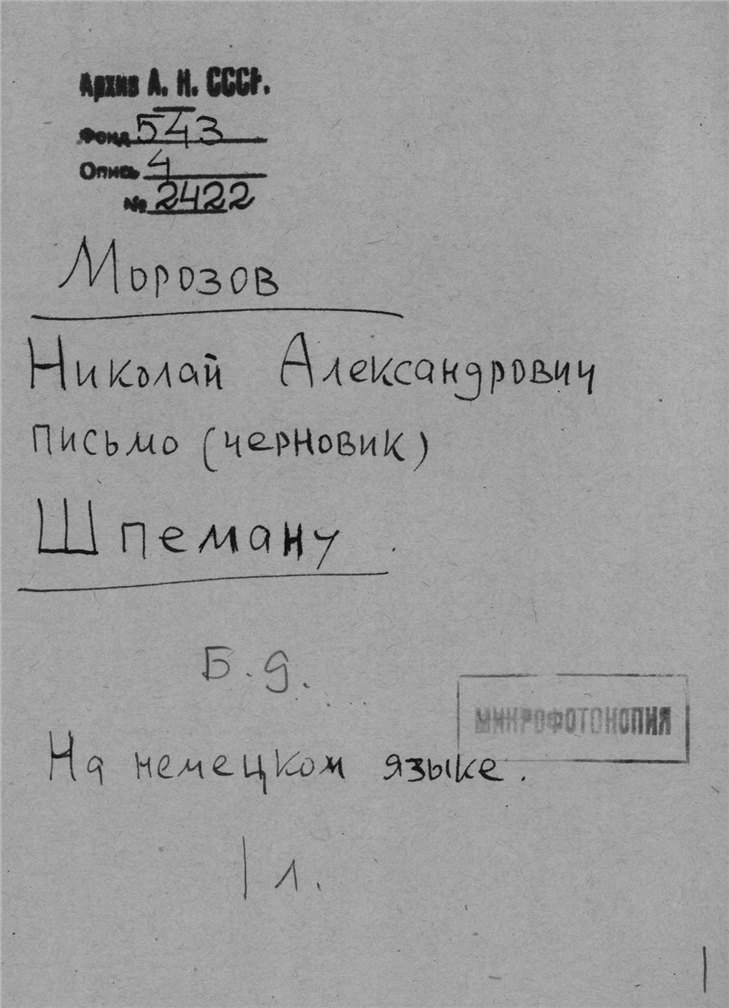 Архив А. Н. СССР.
Фонд 543
Опись 4
№ 2422
Морозов
Николай Александрович
письмо (черновик)
Шпеману
Б.д.
МИКРОФОТОКОПИЯ
На немецком языке.
1 л.
1